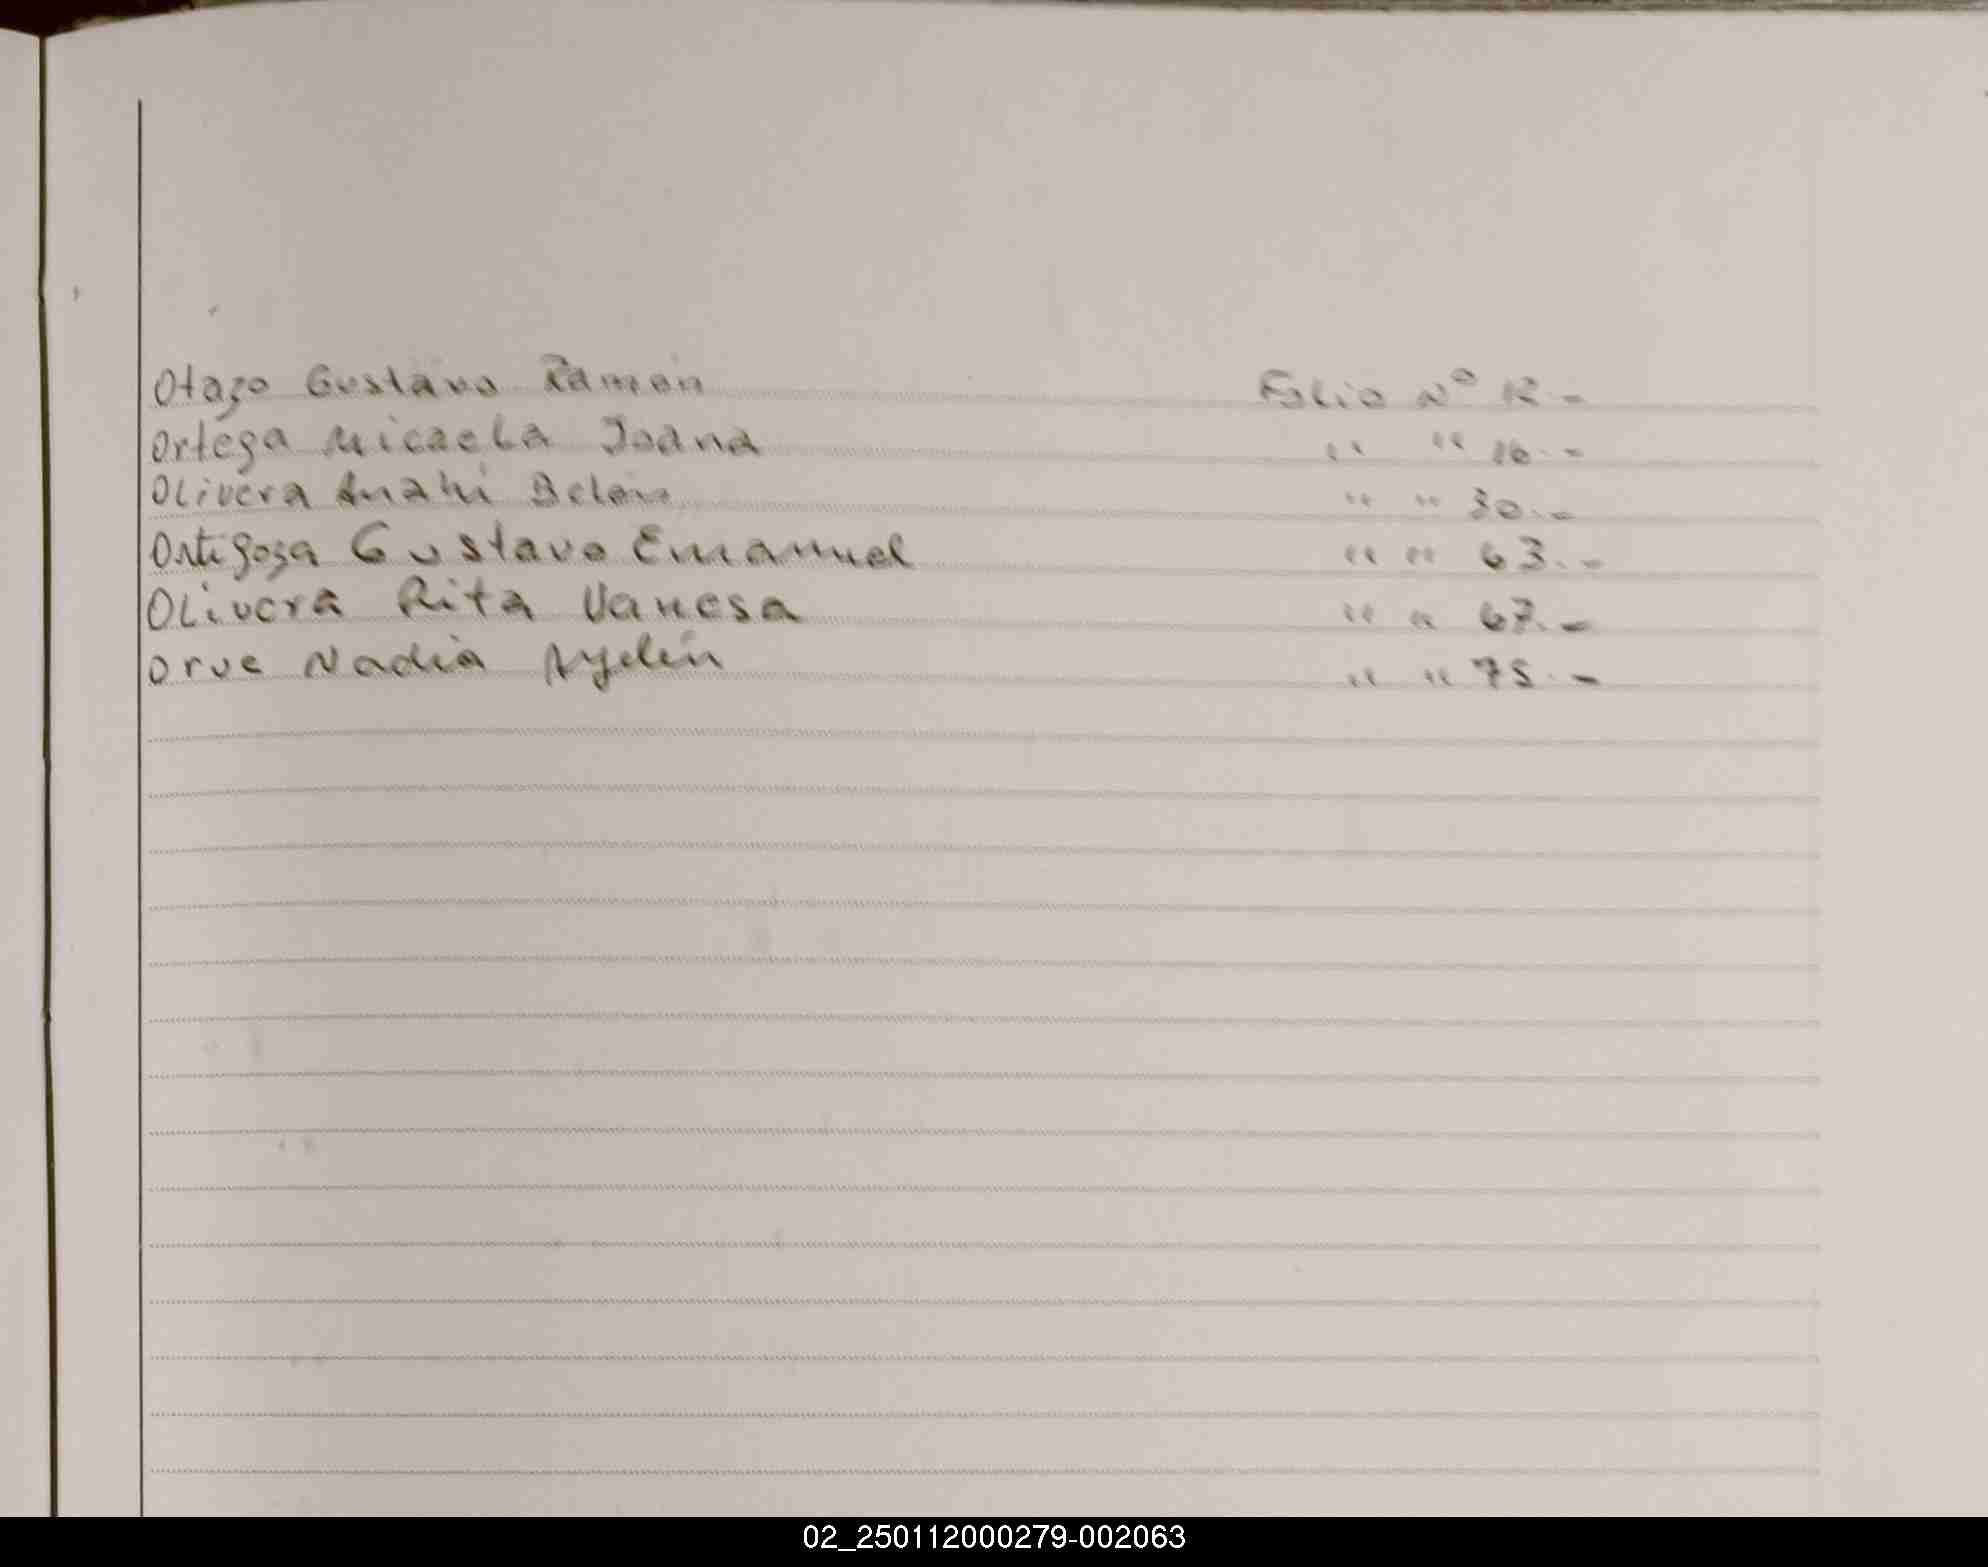 Otazo Gustavo Ramon Folio Nº 12.-
Ortega Micaela Joana " " 16.-
Olivera Anahi Belen " " 30.-
Ortigoza Gustavo Emanuel " " 63.-
Olivera Rita Vanesa " " 67.-
Orue Nadia Ayelén " " 75.-
02_250112000279-002063